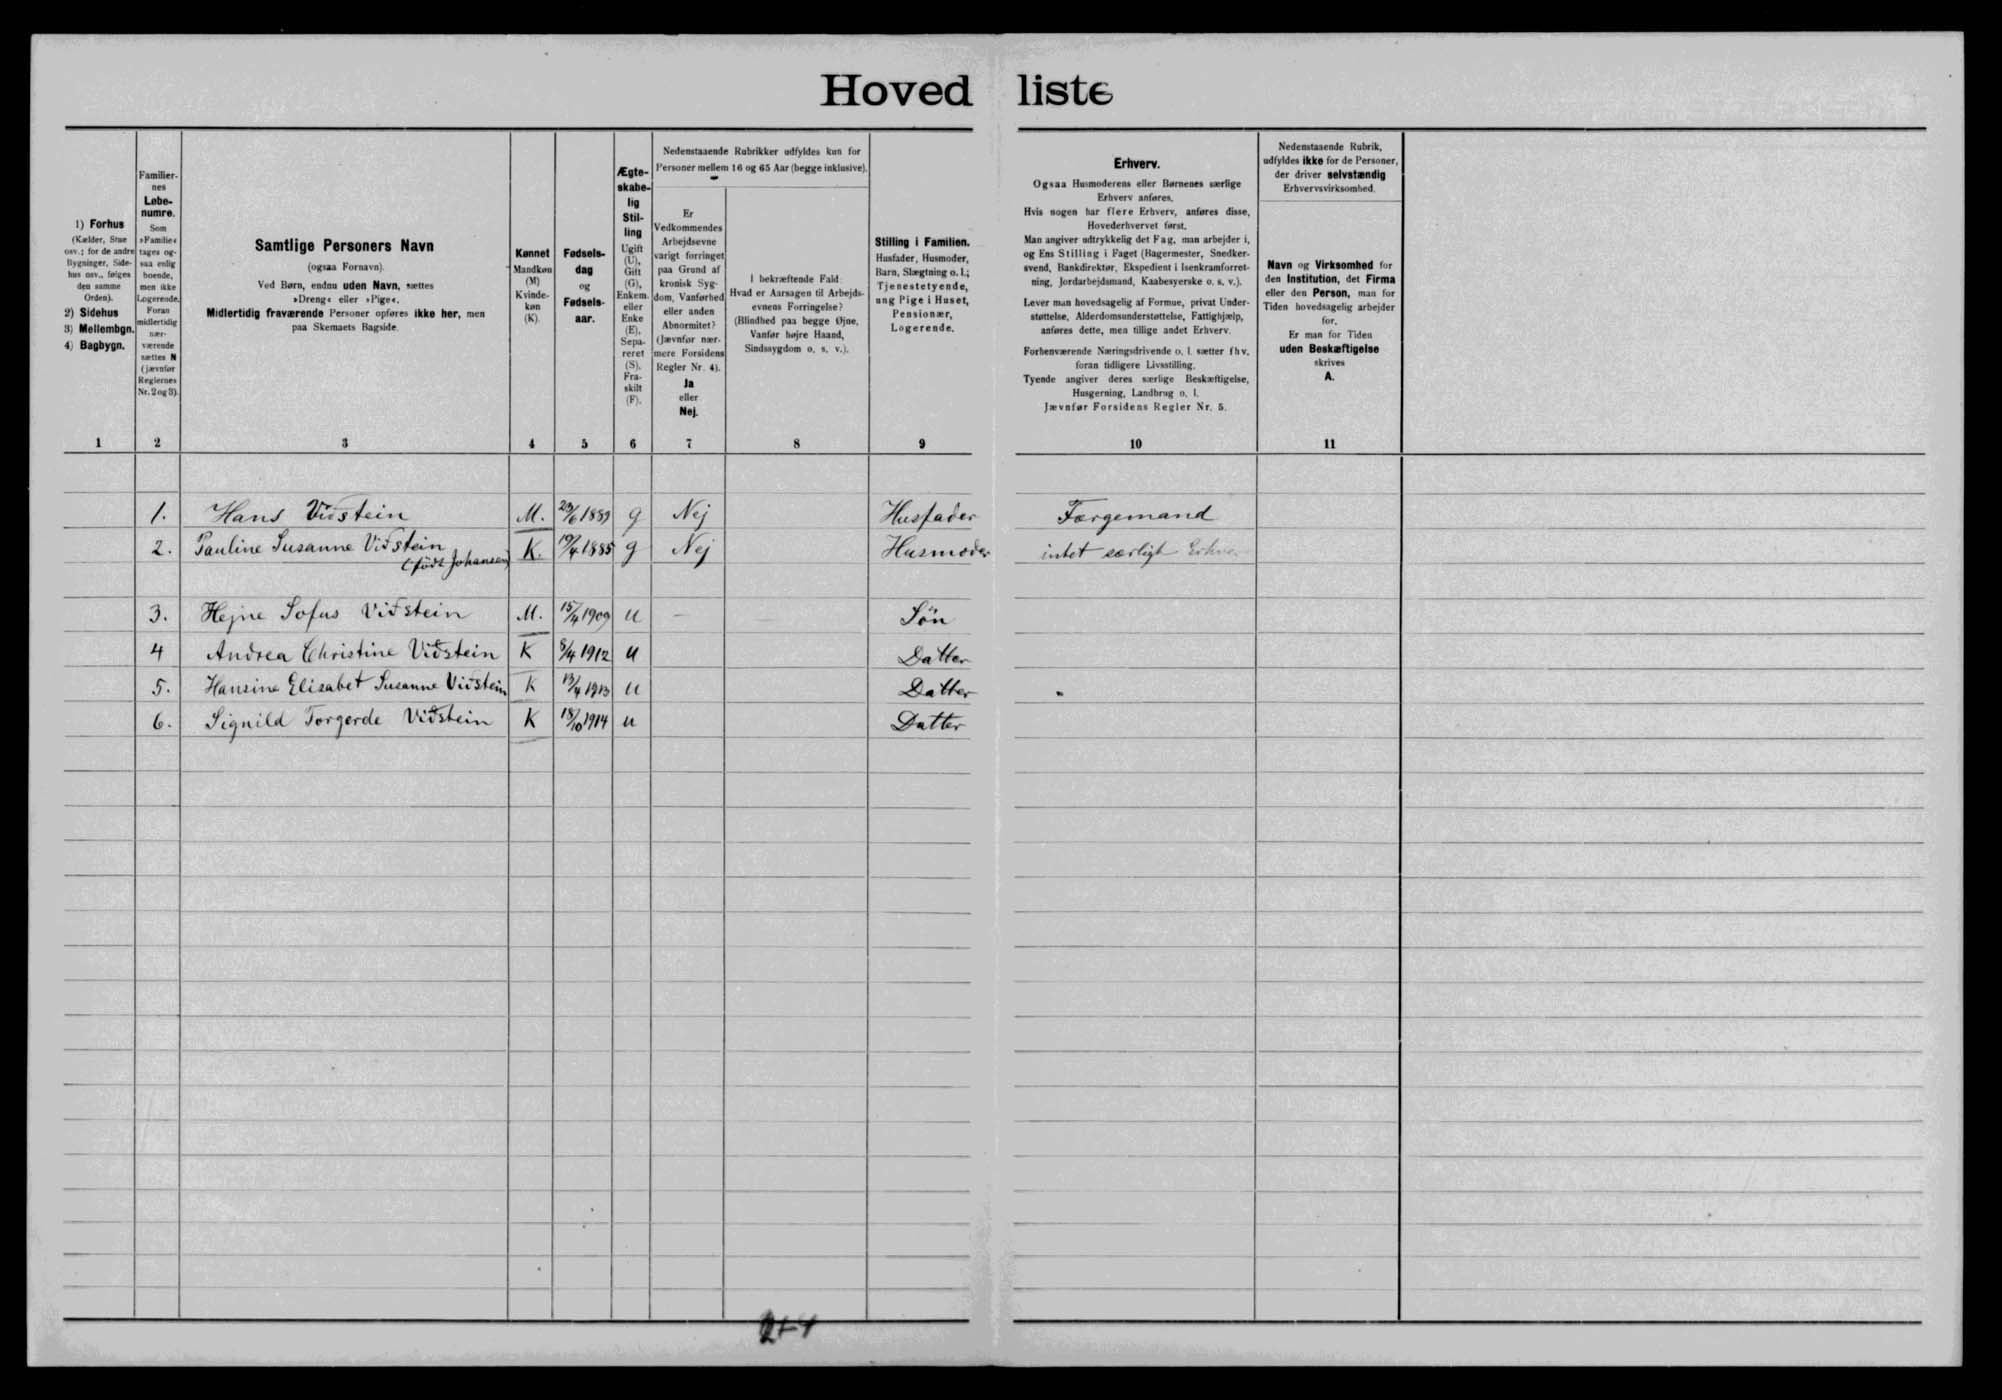 Hoved liste
1) Forhus
(Kælder, Stue
osv.; for de andre
Bygninger, Side-
hus osv., følges
den samme
Orden).
2) Sidehus
3) Mellembgn.
4) Bagbygn.
Familier-
nes
Løbe-
numre.
Som
»Familie«
tages og-
saa enlig
boende,
men ikke
Logerende.
Foran
midlertidig
nær-
værende
sættes N
(jævnfør
Reglernes
Nr. 2 og 3).
Samtlige Personers Navn
(ogsaa Fornavn).
Ved Børn, endnu uden Navn, sættes
»Dreng« eller »Pige«.
Midlertidig fraværende Personer opføres ikke her, men
paa Skemaets Bagside.
Kønnet
Mandkøn
(M)
Kvinde-
køn
(K).
Fødsels-
dag
og
Fødsels-
aar.
Ægte-
skabe-
lig
Stil-
ling
Ugift
(U),
Gift
(G),
Enkem.
eller
Enke
(E),
Sepa-
reret
(S),
Fra-
skilt
(F).
Nedenstaaende Rubrikker udfyldes kun for
Personer mellem 16 og 65 Aar (begge inklusive).
Er
Vedkommendes
Arbejdsevne
varigt forringet
paa Grund af
kronisk Syg-
dom, Vanførhed
eller anden
Abnormitet?
(Jævnfør nær-
mere Forsidens
Regler Nr. 4).
Ja
eller
Nej.
I bekræftende Fald:
Hvad er Aarsagen til Arbejds-
evnens Forringelse?
(Blindhed paa begge Øjne,
Vanfør højre Haand,
Sindssygdom o. s. v.).
Stilling i Familien.
Husfader, Husmoder,
Barn, Slægtning o. l.;
Tjenestetyende,
ung Pige i Huset,
Pensionær,
Logerende.
Erhverv.
Ogsaa Husmoderens eller Børnenes særlige
Erhverv anføres.
Hvis nogen har flere Erhverv, anføres disse,
Hovederhvervet først.
Man angiver udtrykkelig det Fag, man arbejder i,
og Ens Stilling i Faget (Bagermester, Snedker-
svend, Bankdirektør, Ekspedient i Isenkramforret-
ning, Jordarbejdsmand, Kaabesyerske o. s. v.).
Lever man hovedsagelig af Formue, privat Under-
støttelse, Alderdomsunderstøttelse, Fattighjælp,
anføres dette, men tillige andet Erhverv.
Forhenværende Næringsdrivende o. l. sætter fhv.
foran tidligere Livsstilling.
Tyende angiver deres særlige Beskæftigelse,
Husgerning, Landbrug o. l.
Jævnfør Forsidens Regler Nr. 5.
Nedenstaaende Rubrik,
udfyldes ikke for de Personer,
der driver selvstændig
Erhvervsvirksomhed.
Navn og Virksomhed for
den Institution, det Firma
eller den Person, man for
Tiden hovedsagelig arbejder
for.
Er man for Tiden
uden Beskæftigelse
skrives
A.
1 2 3 4 5 6 7 8 9 10 11
1. Hans Viðstein M. 29/6 1889 g Nej Husfader Færgemand
2. Pauline Susanne Viðstein K. 19/4 1885 g Nej Husmoder intet særligt Erhverv
(født Johansen)
3. Hejne Sofus Viðstein M. 15/4 1909 u — Sön
4 Andrea Christine Viðstein K 8/4 1912 u Datter
5. Hansine Elisabet Susanne Viðstein K 13/4 1913 u Datter
6. Signild Torgerde Viðstein K 18/10 1914 u Datter
2+4